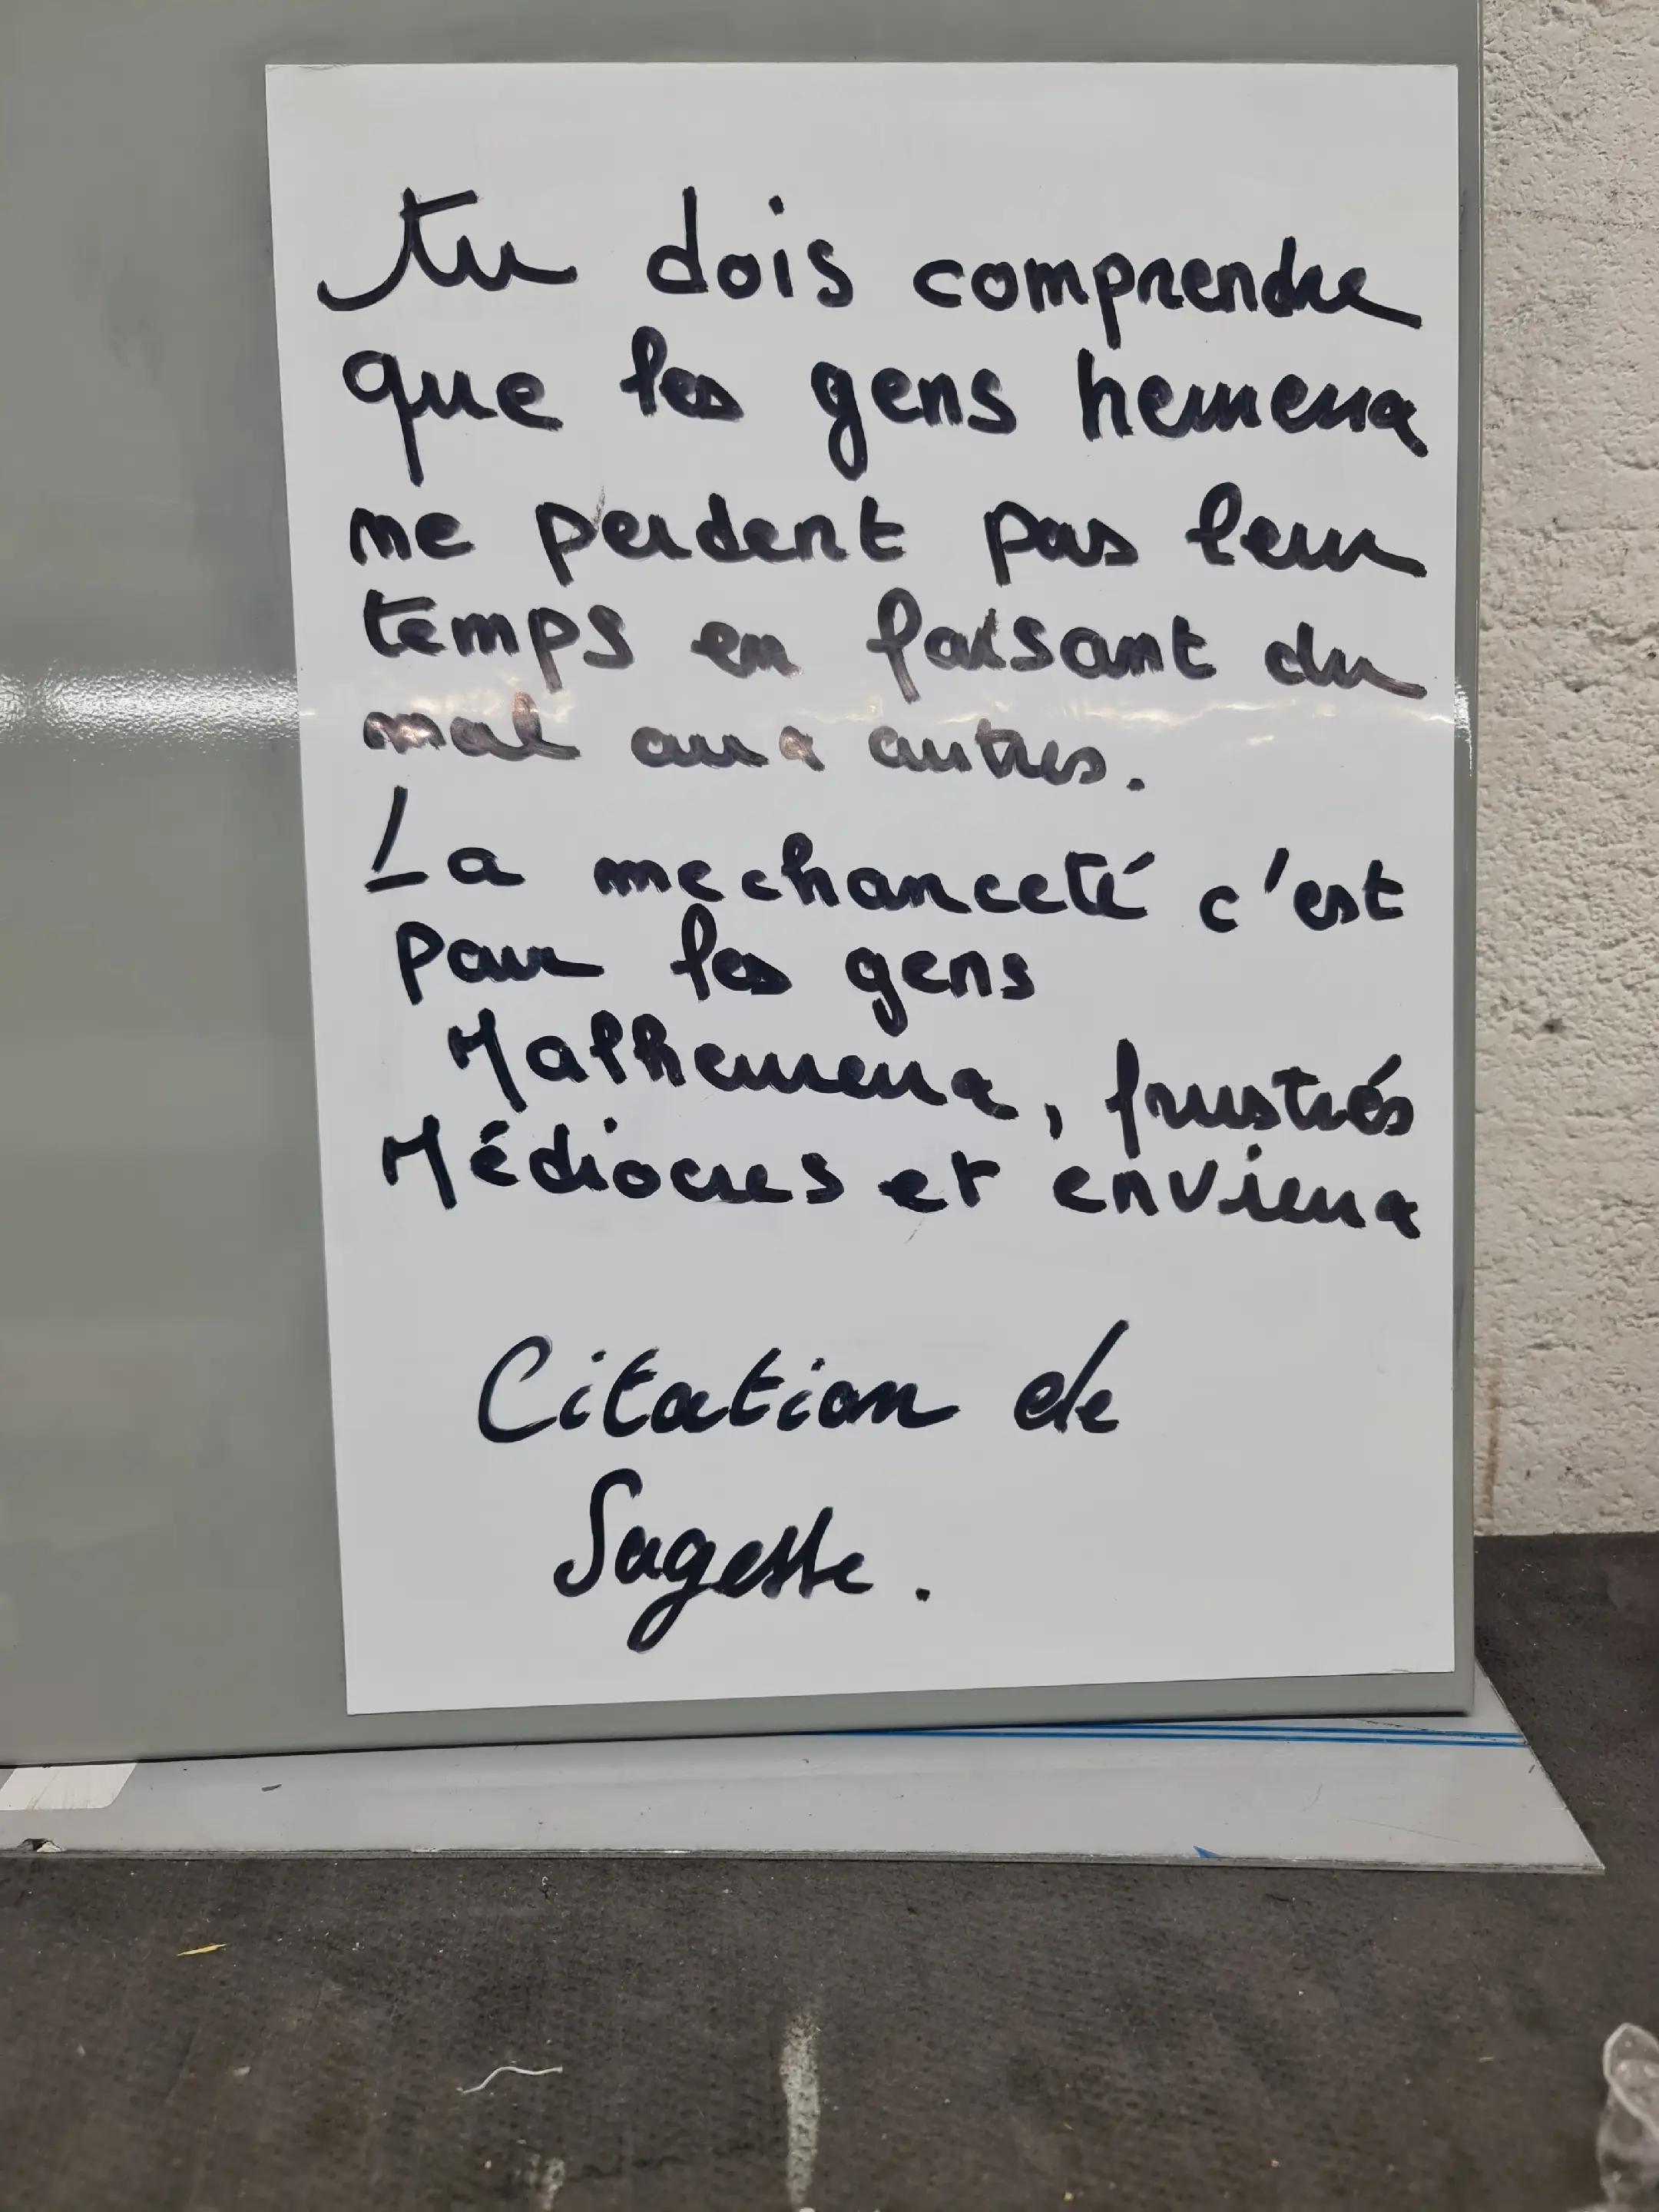 Tu dois comprendre
que les gens heureux
ne perdent pas leur
temps en faisant du
mal aux autres.
La mechanceté c'est
pour les gens
Malheureux, frustrés
Médiocres et envieux
Citation de
Sagesse.